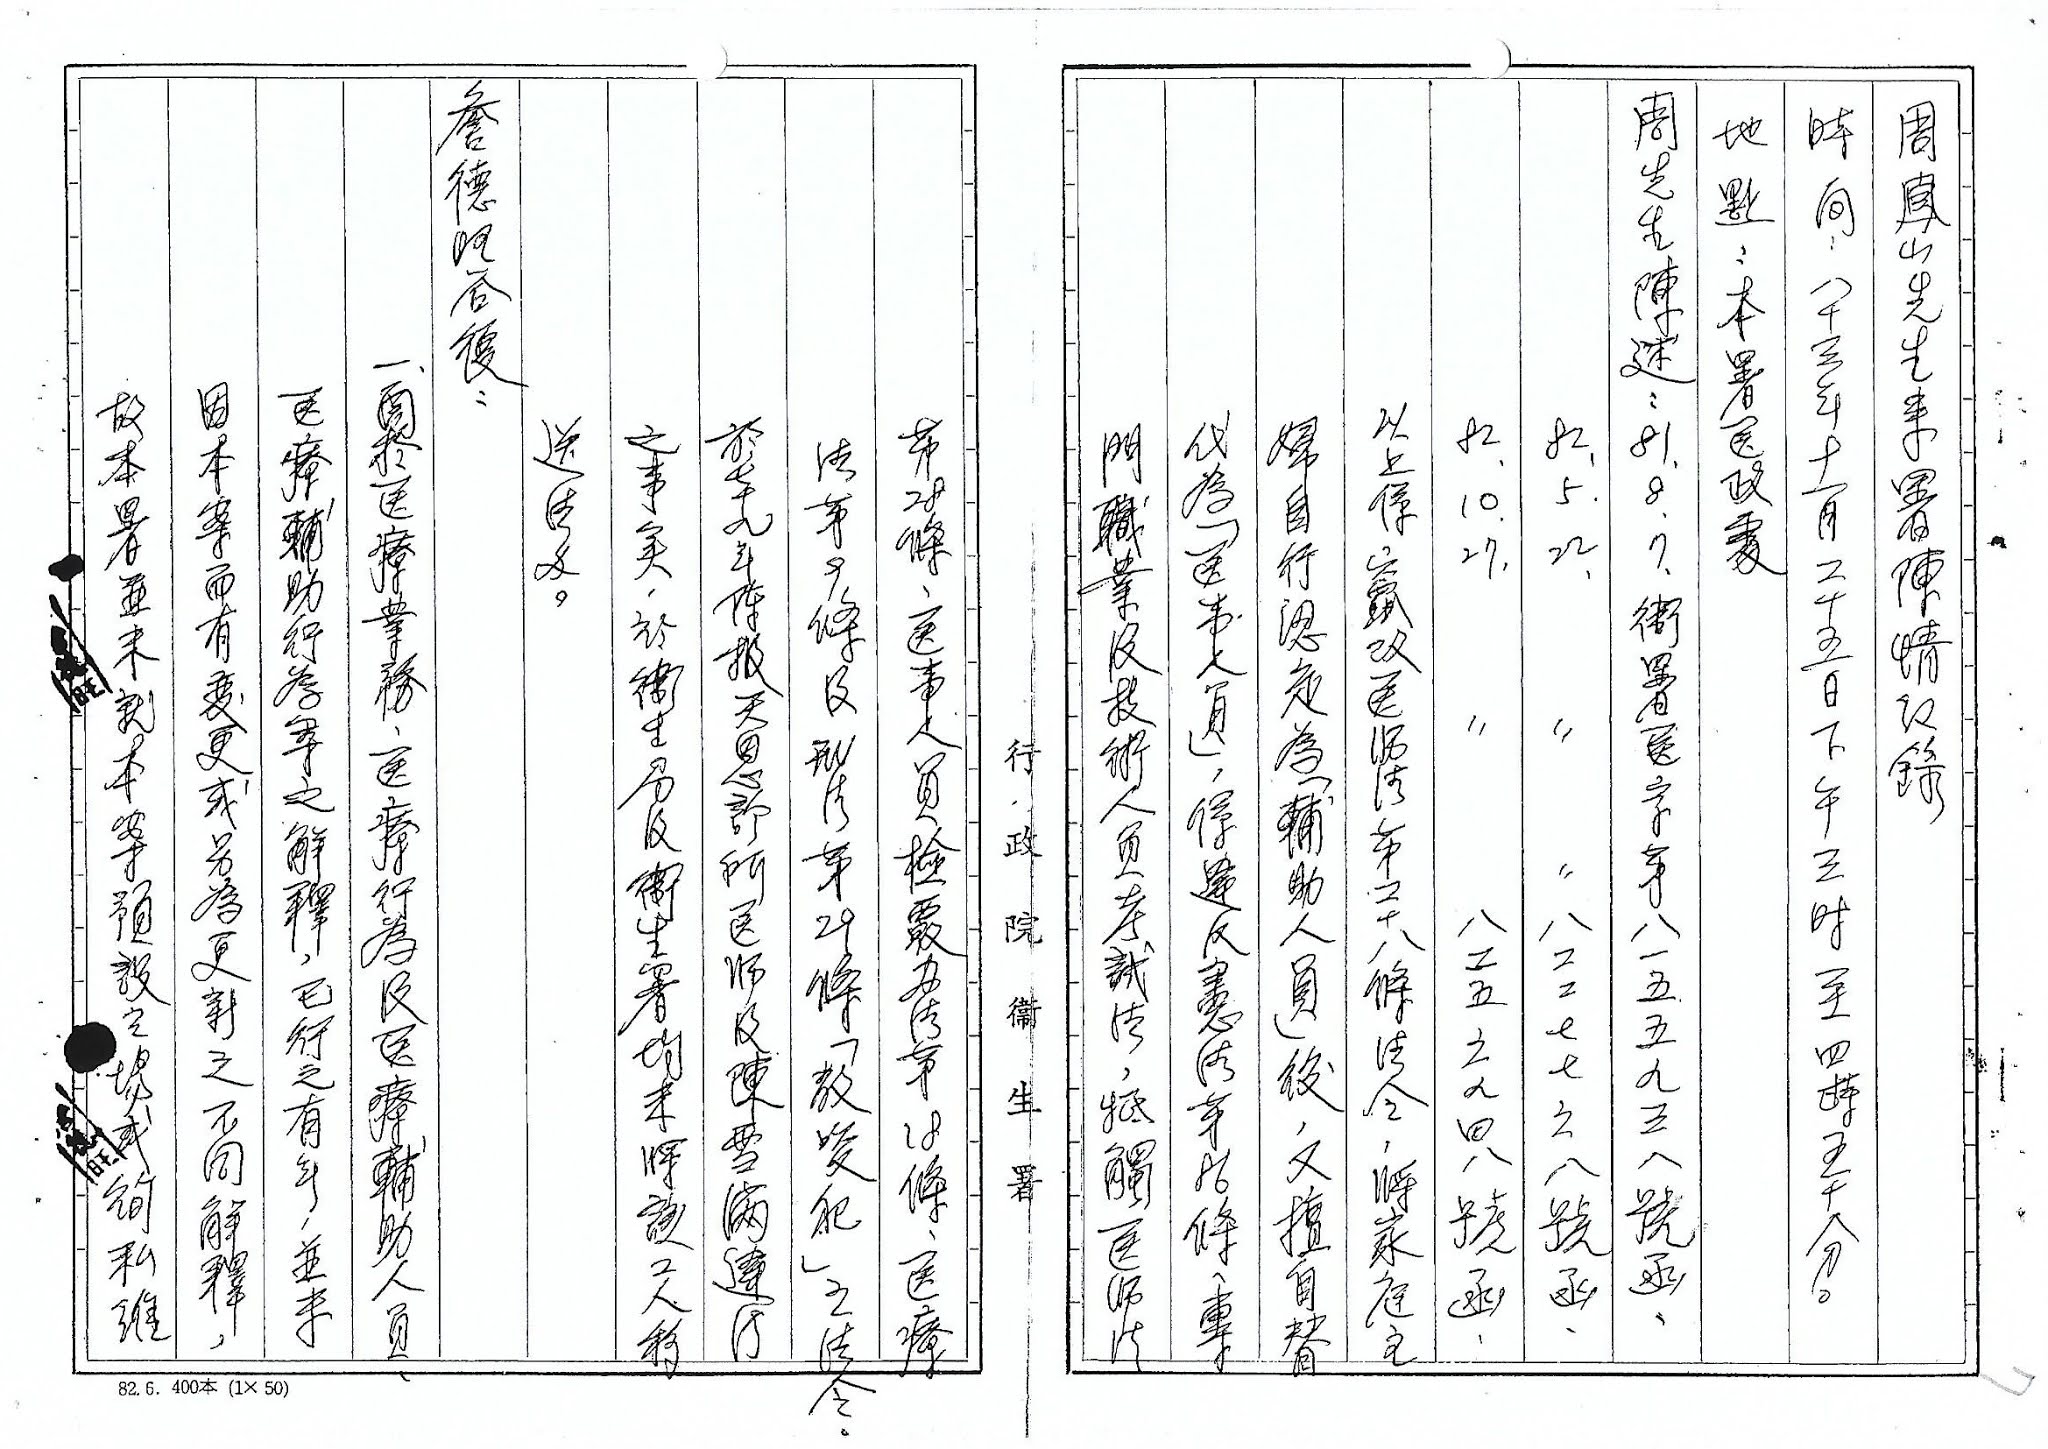 周鳳山先生來署陳情记錄
時间：八十三年十一月二十五日下午三时至四時五十八分。
地點：本署医政处
周先生陳述：81.8.7.衛署医字第八一五五九三八號函、
82.5.22. 〃 〃 八二二七七六八號函、
82.10.27. 〃 八二五六九四八號函、
以上係 竄改医师法第二十八條法令，將家庭主
婦自行認定為「輔助人員」後，又擅自替
代為「医事人員」，係違反憲法第86條、專
門職業及技術人員考試法，牴觸医师法
第28條、医事人員檢覈办法第18條、医療
法第9條及刑法第29條「教唆犯」之法令。
於七十九年陳报天恩診所医师及陳雪滿違法
之事实，於衛生局及衛生署均未將該二人移
送法办。
詹德旺答復：
一、関於医療業務、医療行為及医療輔助人員、
医療輔助行為等之解釋，已行之有年，並未
因本案而有變更或另為更新之不同解釋，
故本署並未就本案預設立場或徇私維
行政院衛生署
82.6. 400本 (1×50)